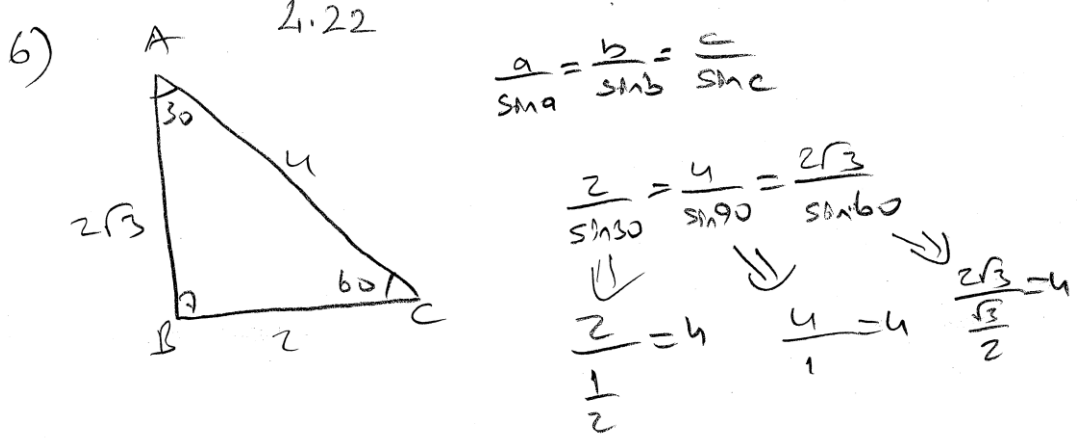 6)
2.22
A
30
4
2√3
60
B
2
C
a/sina = b/sinb = c/sinc
2/sin30 = 4/sin90 = 2√3/sin60
2/(1/2) = 4
4/1 = 4
2√3/(√3/2) = 4